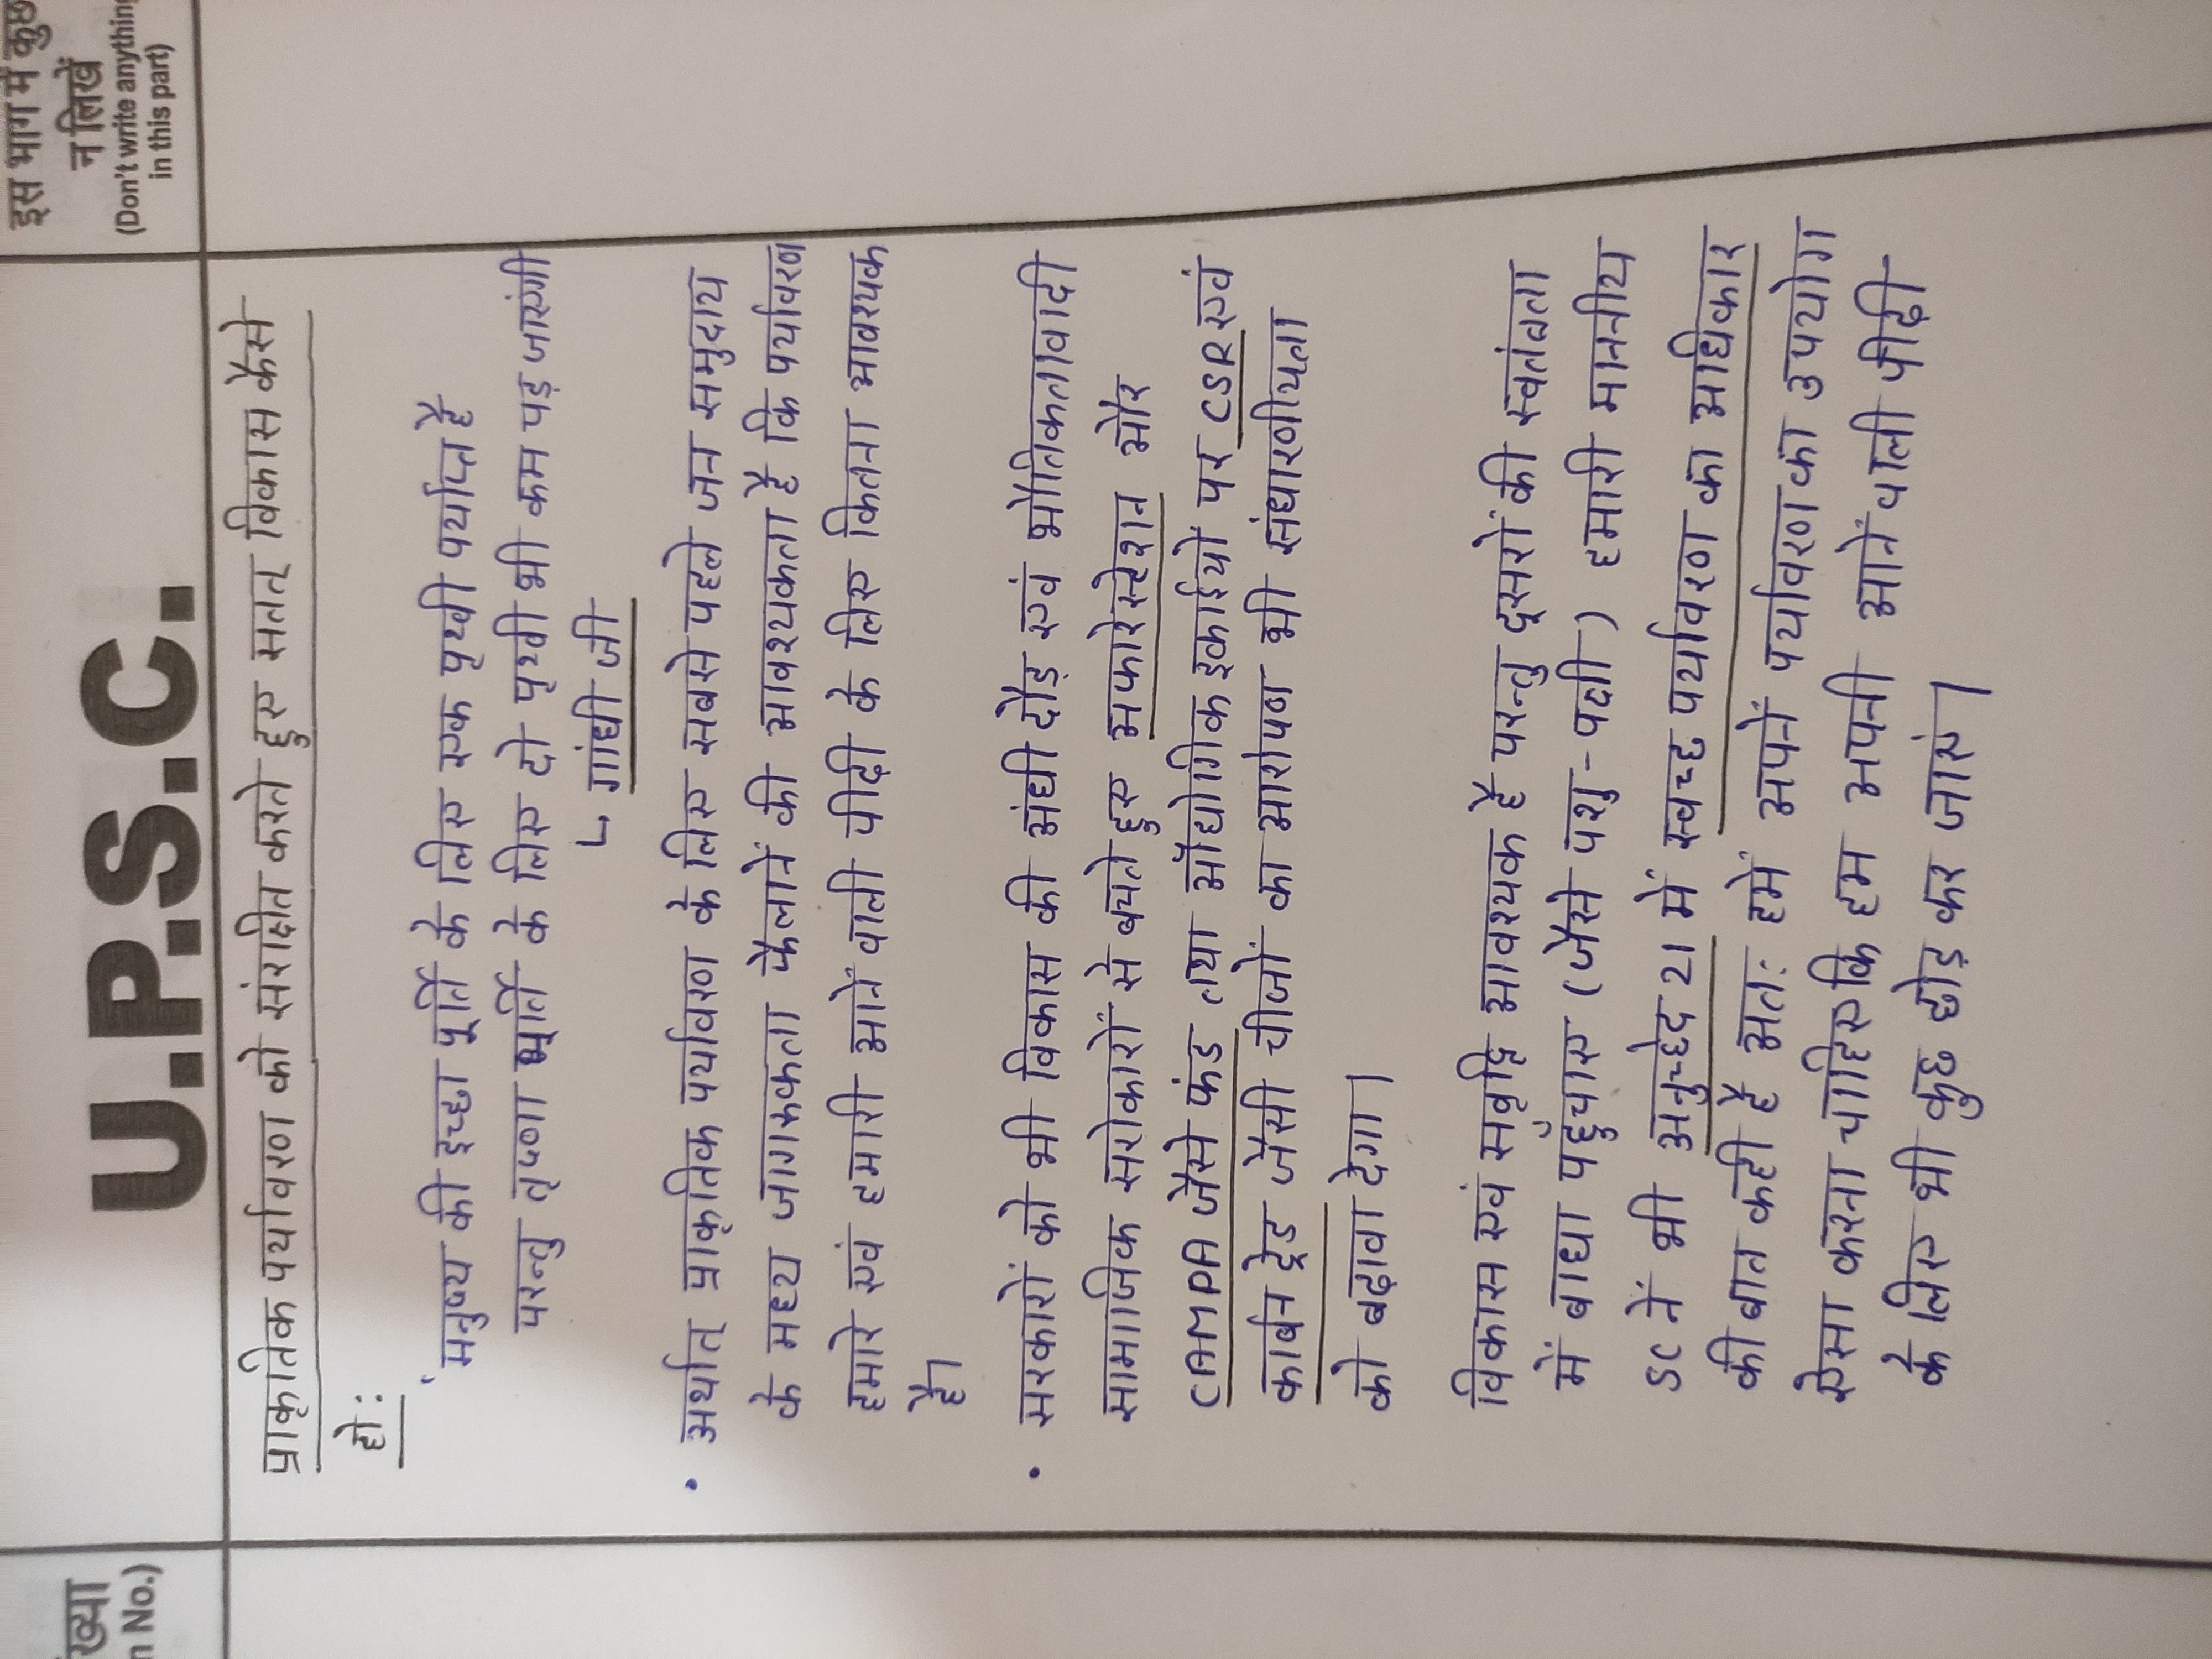 ख्या
n No.)
U.P.S.C.
इस भाग में कुछ
न लिखें
(Don't write anything
in this part)
प्राकृतिक पर्यावरण को संरक्षित करते हुए सतत् विकास कैसे
हो:
'मनुष्य की इच्छा पूर्ति के लिए एक पृथ्वी पर्याप्त है
परन्तु तृष्णा पूर्ति के लिए दो पृथ्वी भी कम पड़ जाएंगी
↳ गांधी जी
• अर्थात् प्राकृतिक पर्यावरण के लिए सबसे पहले जन समुदाय
के मध्य जागरूकता फैलानें की आवश्यकता है कि पर्यावरण
हमारे एवं हमारी आनें वाली पीढ़ी के लिए कितना आवश्यक
है।
• सरकारों को भी विकास की अंधी दौड़ एवं भौतिकतावादी
सामाजिक सरोकारों से बचते हुए अफोरेस्टेशन और
CAMPA जैसे फंड तथा औद्योगिक इकाईयों पर CSR एवं
कार्बन ट्रेड जैसी चीजों का आरोपण भी संधारणीयता
को बढ़ावा देगा।
विकास एवं सवृद्दि आवश्यक है परन्तु दूसरों की स्वतंत्रता
में बाधा पहुंचाए (जैसे पशु-पक्षी) हमारी माननीय
SC नें भी अनुच्छेद 21 में स्वच्छ पर्यावरण का अधिकार
की बात कही है अतः हमें अपनें पर्यावरण का उपयोग
ऐसा करना चाहिए कि हम अपनी आनें वाली पीढ़ी
के लिए भी कुछ छोड़ कर जाएं।